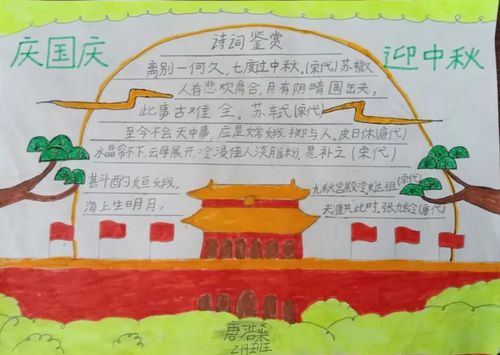 庆国庆
迎中秋
诗词鉴赏
离别一何久,七度过中秋。(宋代)苏辙
人有悲欢离合,月有阴晴圆缺,
此事古难全。苏轼(宋代)
至今不会天中事,应是嫦娥掷与人,皮日休(唐代)
水晶帘不下,云母屏开,冷浸佳人淡脂粉,晁补之(宋代)
甚斗酒的姮娥,
九秋宫殿冷,史达祖(宋代)
海上生明月,
天涯共此时,张九龄(唐代)
唐浩
219班